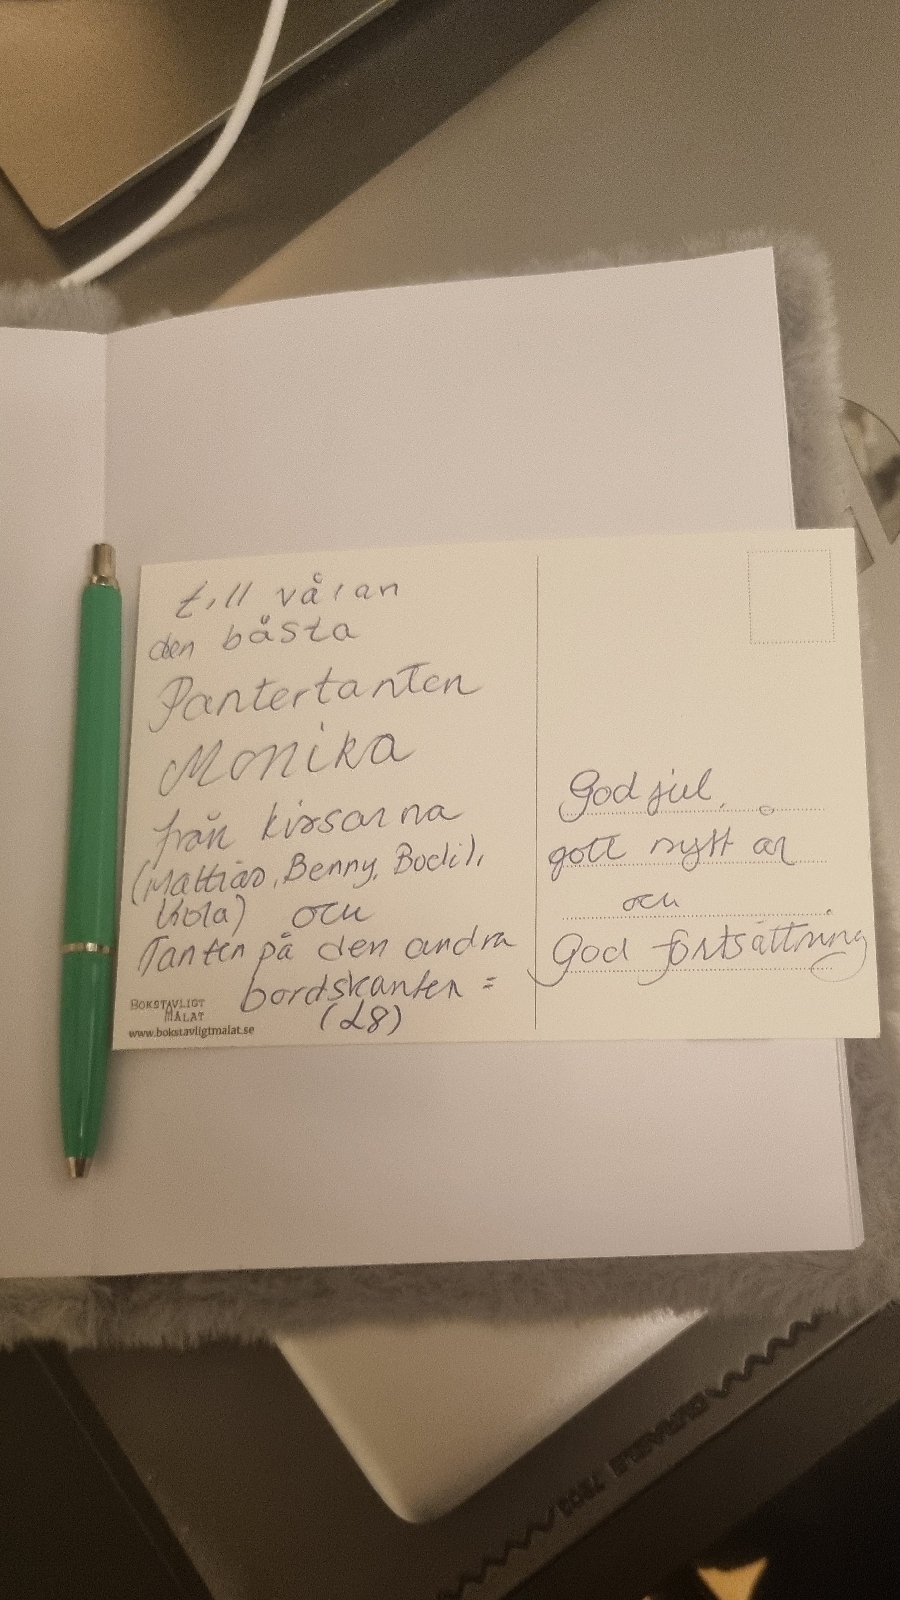 till våran
den bästa
Pantertanten
Monika
från kissarna
(Mattias, Benny, Bodil,
Kola) och
Tanten på den andra
bordskanten =
(28)
BOKSTAVLIGT
MÅLAT
www.bokstavligtmalat.se
God jul,
gott nytt år
och
God fortsättning